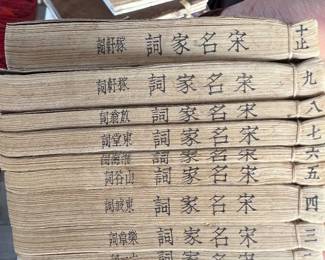 十止 宋名家詞 稼軒詞
九 宋名家詞 稼軒詞
八 宋名家詞 放翁詞
七 宋名家詞 東堂詞
六 宋名家詞 淮海詞
五 宋名家詞 山谷詞
四 宋名家詞 東坡詞
三 宋名家詞 樂章詞